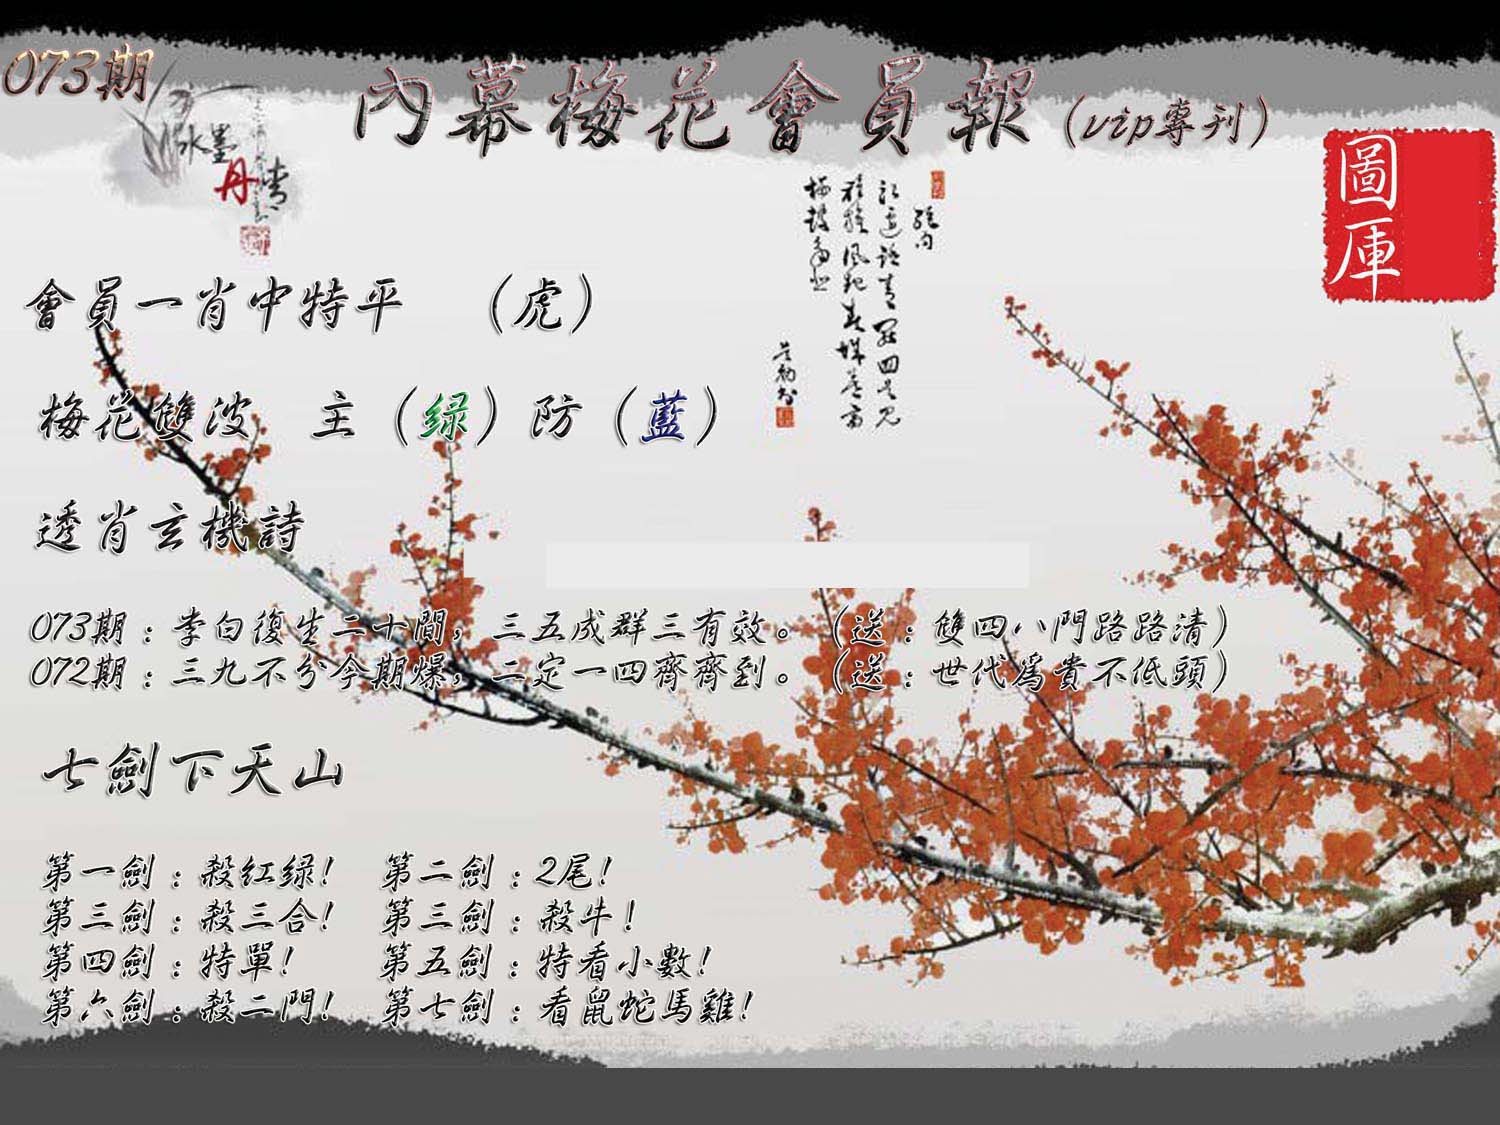 073期
內幕梅花會員報（vip專刊）
水墨
丹情
圖庫
會員一肖中特平 （虎）
梅花雙波 主（绿）防（藍）
透肖玄機詩
073期：李白復生二十間，三五成群三有效。（送：雙四八門路路清）
072期：三九不兮今期爆，二定一四齊齊到。（送：世代爲貴不低頭）
七劍下天山
第一劍：殺红绿! 第二劍：2尾!
第三劍：殺三合! 第三劍：殺牛!
第四劍：特單! 第五劍：特看小數!
第六劍：殺二門! 第七劍：看鼠蛇馬雞!